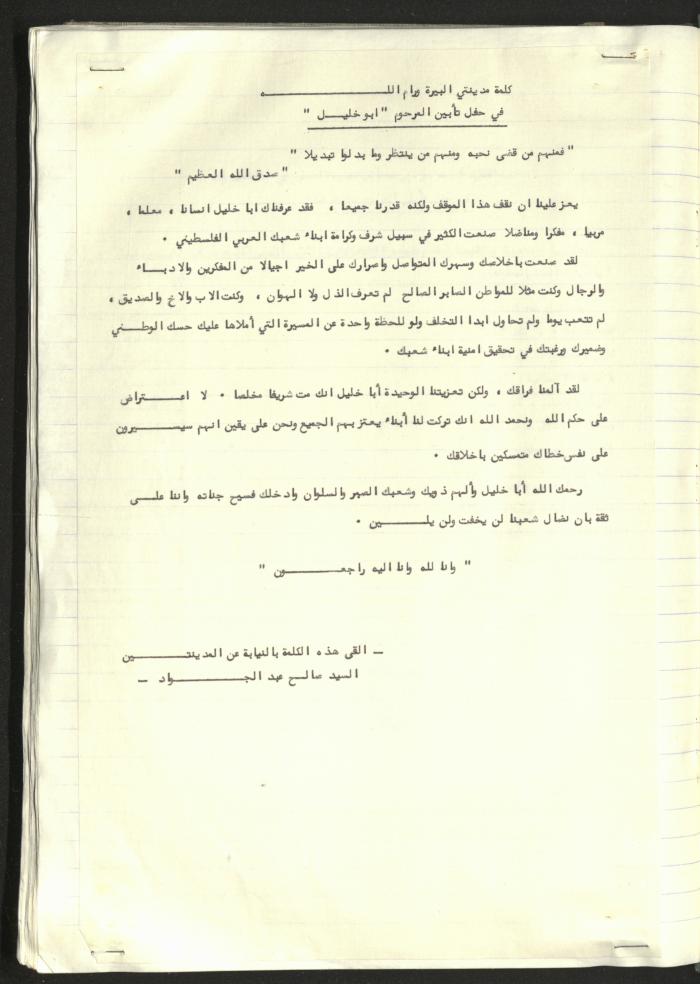 كلمة مدينتي البيرة ورام اللـــــــــــــــه
في حفل تأبين المرحوم "ابو خليـــــل "
"فمنهم من قضى نحبه ومنهم من ينتظر وما بدلوا تبديلا "
"صدق الله العظيم "
يعز علينا ان نقف هذا الموقف ولكنه قدرنا جميعا ، فقد عرفناك ابا خليل انسانا ، معلما ،
مربيا ، مفكرا ومناضلا صنعت الكثير في سبيل شرف وكرامة ابناء شعبك العربي الفلسطيني .
لقد صنعت باخلاصك وسهرك المتواصل واصرارك على الخير اجيالا من المفكرين والادبـــاء
والرجال وكنت مثلا للمواطن الصابر الصالح لم تعرف الذل ولا الهوان ، وكنت الاب والاخ والصديق ،
لم تتعب يوما ولم تحاول ابدا التخلف ولو للحظة واحدة عن المسيرة التي أملاها عليك حسك الوطـــني
وضميرك ورغبتك في تحقيق امنية ابناء شعبك .
لقد آلمنا فراقك ، ولكن تعزيتنا الوحيدة أبا خليل انك مت شريفا مخلصا . لا اعــــتراض
على حكم الله ونحمد الله انك تركت لنا أبناء يعتز بهم الجميع ونحن على يقين انهم سيـــــيرون
على نفس خطاك متمسكين باخلاقك .
رحمك الله أبا خليل وألهم ذويك وشعبك الصبر والسلوان وادخلك فسيح جناته واننا علـــى
ثقة بان نضال شعبنا لن يخفت ولن يلــــــــين .
" وانا لله وانا اليه راجعـــــــــون "
ـ القى هذه الكلمة بالنيابة عن المدينتـــــــــين
السيد صالـح عبد الجـــــــــواد ـ